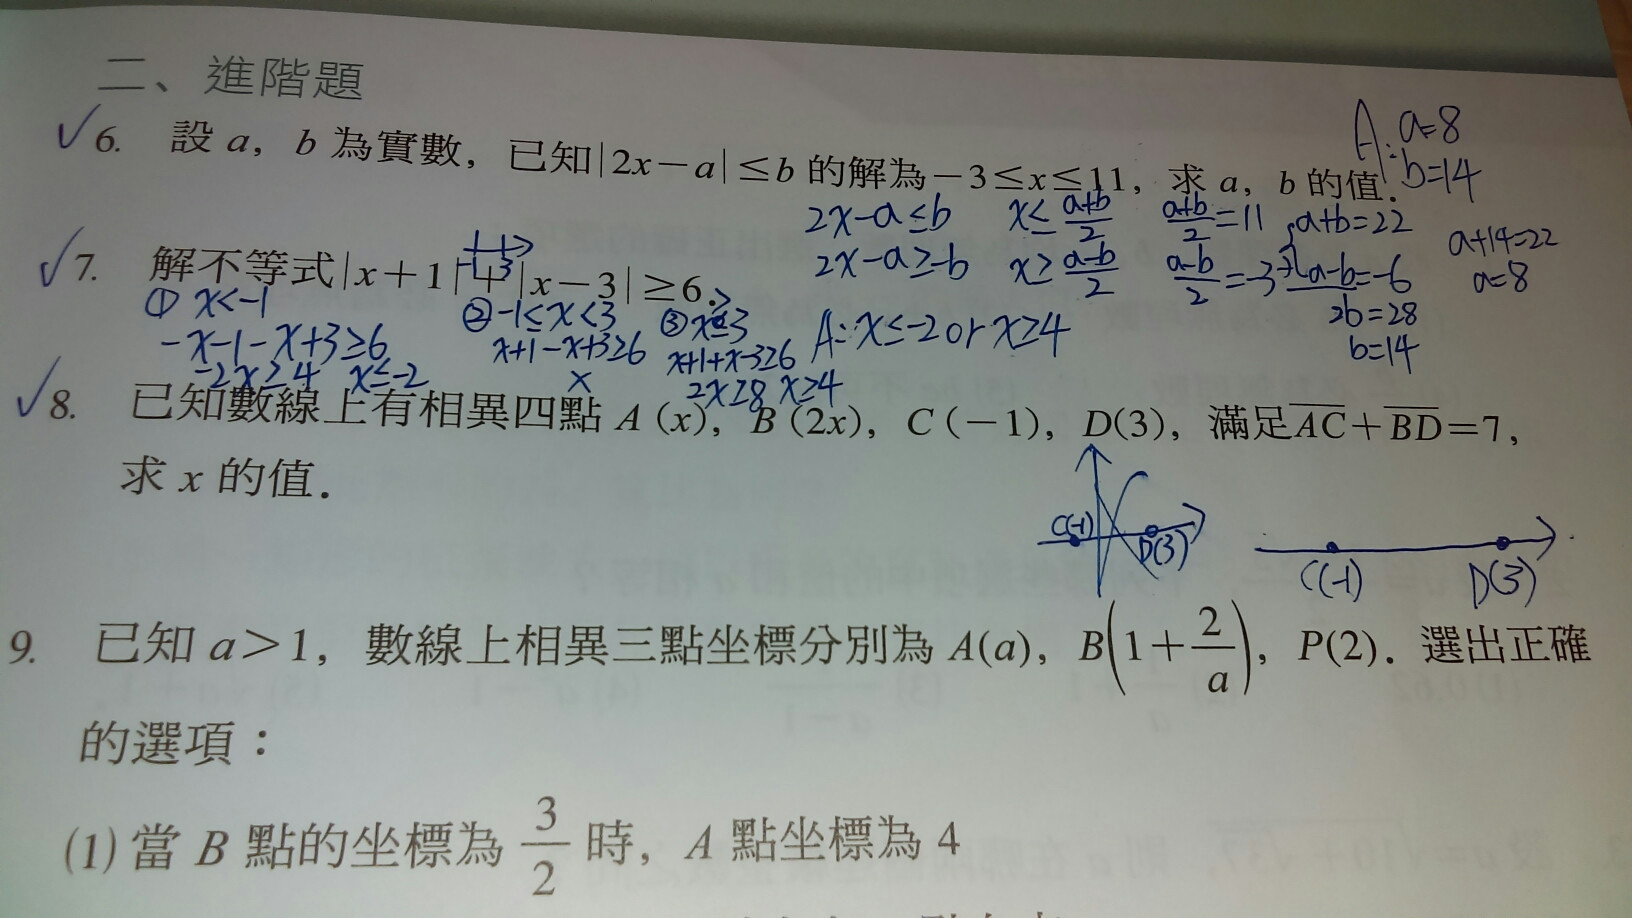 二、進階題
✓6. 設 a，b 為實數，已知|2x－a|≤b 的解為－3≤x≤11，求 a，b 的值．
A: a=8
b=14
2x-a≤b x≤(a+b)/2 (a+b)/2=11 a+b=22
2x-a≥-b x≥(a-b)/2 (a-b)/2=-3 a-b=-6
2b=28
b=14
a+14=22
a=8
✓7. 解不等式|x＋1|＋|x－3|≥6．
-1 3
① x<-1
-x-1-x+3≥6
-2x≥4 x≤-2
② -1≤x<3
x+1-x+3≥6
x
③ x≥3
x+1+x-3≥6
2x≥8 x≥4
A: x≤-2 or x≥4
✓8. 已知數線上有相異四點 A (x)，B (2x)，C (－1)，D(3)，滿足AC＋BD＝7，
求 x 的值．
C(-1) D(3)
C(-1) D(3)
9. 已知 a＞1，數線上相異三點坐標分別為 A(a)，B(1＋2/a)，P(2)．選出正確
的選項：
(1) 當 B 點的坐標為 3/2 時，A 點坐標為 4